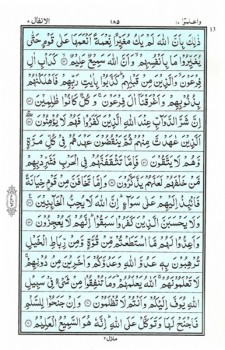 واعلموا ١٠
١٨٥
الانفال ٨
ذٰلِكَ بِاَنَّ اللّٰهَ لَمْ يَكُ مُغَيِّرًا نِّعْمَةً اَنْعَمَهَا عَلٰى قَوْمٍ حَتّٰى
يُغَيِّرُوْا مَا بِاَنْفُسِهِمْ وَاَنَّ اللّٰهَ سَمِيْعٌ عَلِيْمٌ كَدَاْبِ اٰلِ
فِرْعَوْنَ وَالَّذِيْنَ مِنْ قَبْلِهِمْ كَذَّبُوْا بِاٰيٰتِ رَبِّهِمْ فَاَهْلَكْنٰهُمْ
بِذُنُوْبِهِمْ وَاَغْرَقْنَا اٰلَ فِرْعَوْنَ وَكُلٌّ كَانُوْا ظٰلِمِيْنَ
اِنَّ شَرَّ الدَّوَآبِّ عِنْدَ اللّٰهِ الَّذِيْنَ كَفَرُوْا فَهُمْ لَا يُؤْمِنُوْنَ
اَلَّذِيْنَ عٰهَدْتَّ مِنْهُمْ ثُمَّ يَنْقُضُوْنَ عَهْدَهُمْ فِيْ كُلِّ مَرَّةٍ
وَّهُمْ لَا يَتَّقُوْنَ فَاِمَّا تَثْقَفَنَّهُمْ فِي الْحَرْبِ فَشَرِّدْ بِهِمْ
مَّنْ خَلْفَهُمْ لَعَلَّهُمْ يَذَّكَّرُوْنَ وَاِمَّا تَخَافَنَّ مِنْ قَوْمٍ خِيَانَةً
فَانْۢبِذْ اِلَيْهِمْ عَلٰى سَوَآءٍ اِنَّ اللّٰهَ لَا يُحِبُّ الْخَآئِنِيْنَ
وَلَا يَحْسَبَنَّ الَّذِيْنَ كَفَرُوْا سَبَقُوْا اِنَّهُمْ لَا يُعْجِزُوْنَ
وَاَعِدُّوْا لَهُمْ مَّا اسْتَطَعْتُمْ مِّنْ قُوَّةٍ وَّمِنْ رِّبَاطِ الْخَيْلِ
تُرْهِبُوْنَ بِهٖ عَدُوَّ اللّٰهِ وَعَدُوَّكُمْ وَاٰخَرِيْنَ مِنْ دُوْنِهِمْ
لَا تَعْلَمُوْنَهُمْ اَللّٰهُ يَعْلَمُهُمْ وَمَا تُنْفِقُوْا مِنْ شَيْءٍ فِيْ سَبِيْلِ
اللّٰهِ يُوَفَّ اِلَيْكُمْ وَاَنْتُمْ لَا تُظْلَمُوْنَ وَاِنْ جَنَحُوْا لِلسَّلْمِ
فَاجْنَحْ لَهَا وَتَوَكَّلْ عَلَى اللّٰهِ اِنَّهٗ هُوَ السَّمِيْعُ الْعَلِيْمُ
منزل ٢